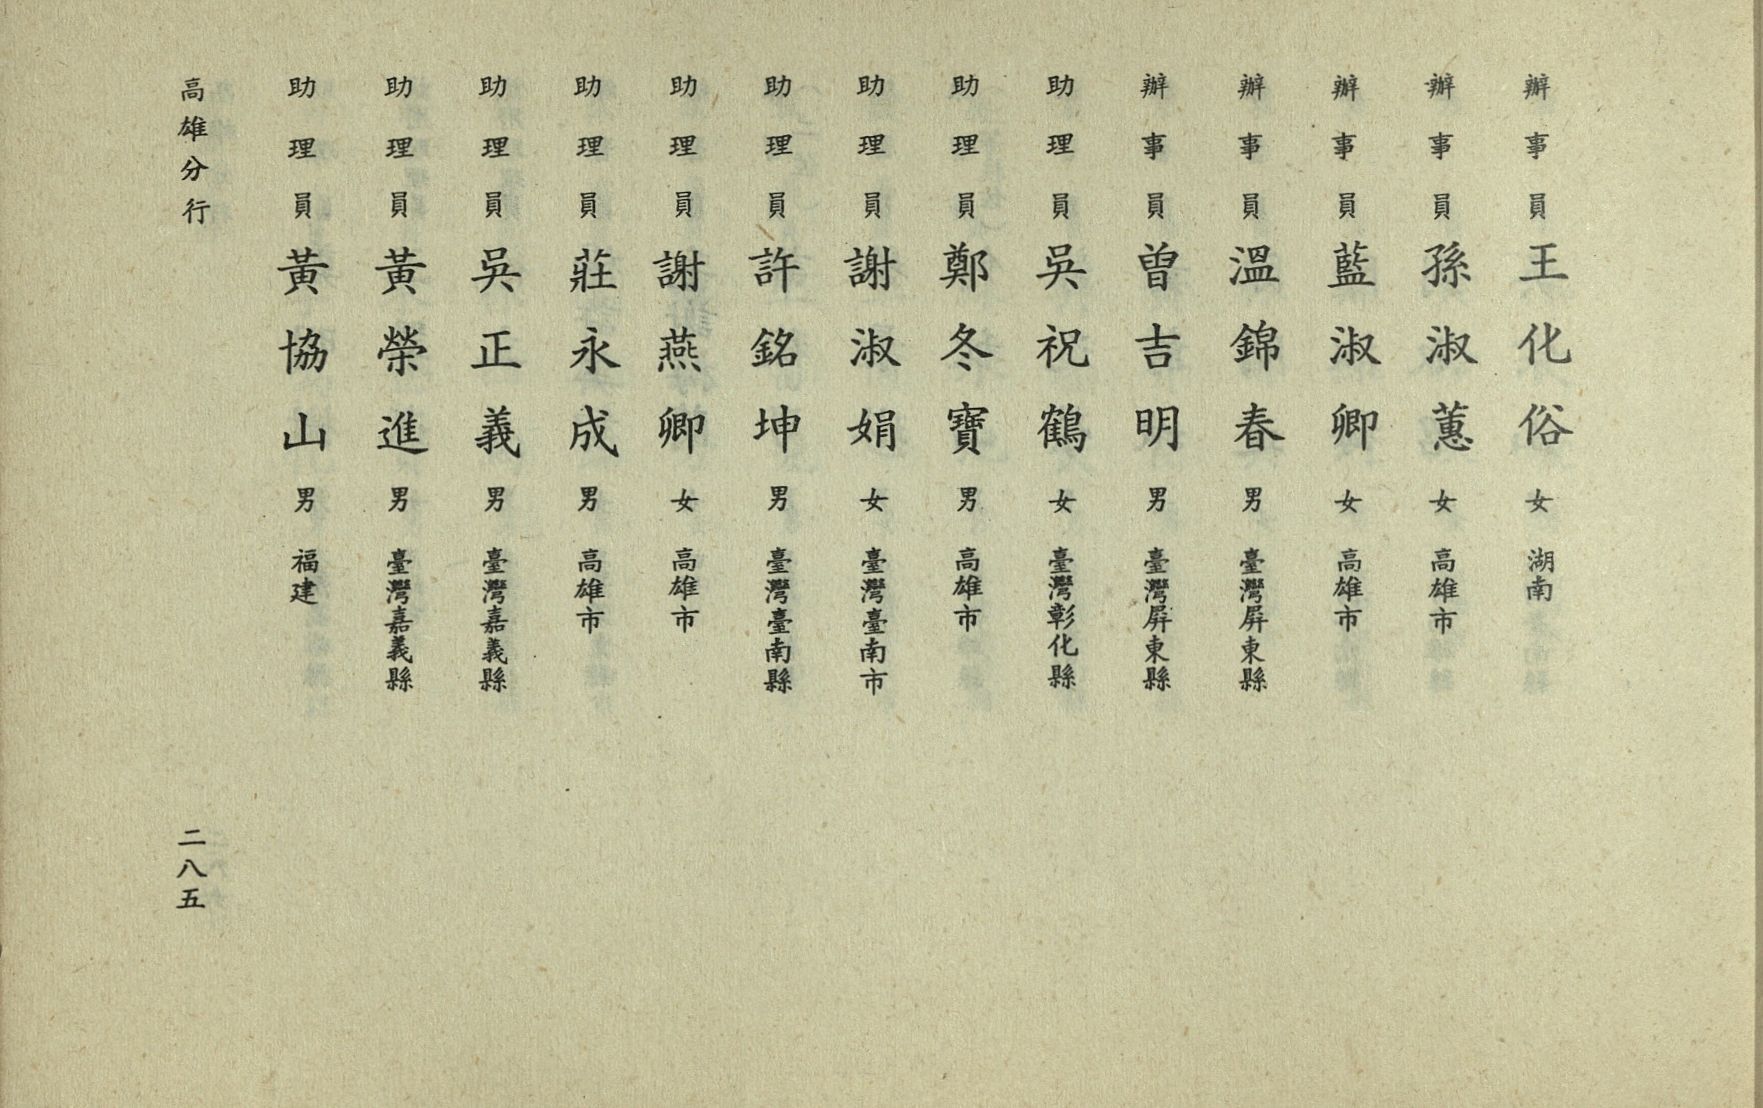 辦事員王化俗女湖南
辦事員孫淑蕙女高雄市
辦事員藍淑卿女高雄市
辦事員溫錦春男臺灣屏東縣
辦事員曾吉明男臺灣屏東縣
助理員吳祝鶴女臺灣彰化縣
助理員鄭冬寶男高雄市
助理員謝淑娟女臺灣臺南市
助理員許銘坤男臺灣臺南縣
助理員謝燕卿女高雄市
助理員莊永成男高雄市
助理員吳正義男臺灣嘉義縣
助理員黃榮進男臺灣嘉義縣
助理員黃協山男福建
高雄分行
二八五